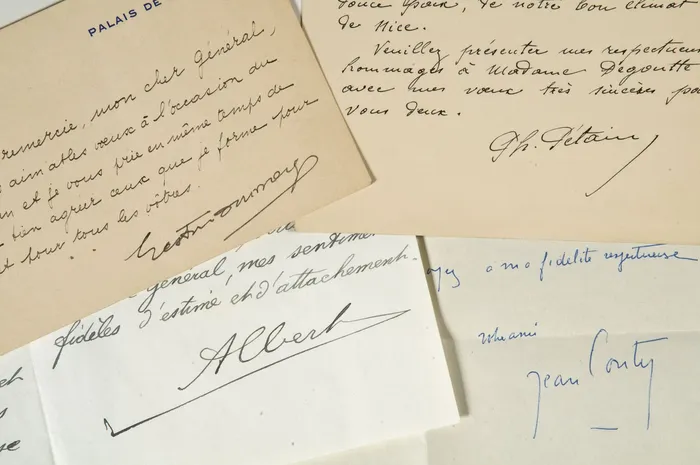 PALAIS DE
remercie, mon cher Général,
aimables vœux à l'occasion du
an et je vous prie en même temps de
bien agréer ceux que je forme pour
et pour tous les vôtres.
douce paix, de notre bon climat
de Nice.
Veuillez présenter mes respectueux
hommages à Madame Degoutte
avec mes vœux très sincères po
vous deux.
Ph. Pétain
général, mes sentime
fidèles d'estime et d'attachement.
Albert
à ma fidélité respectueuse
votre ami
Jean